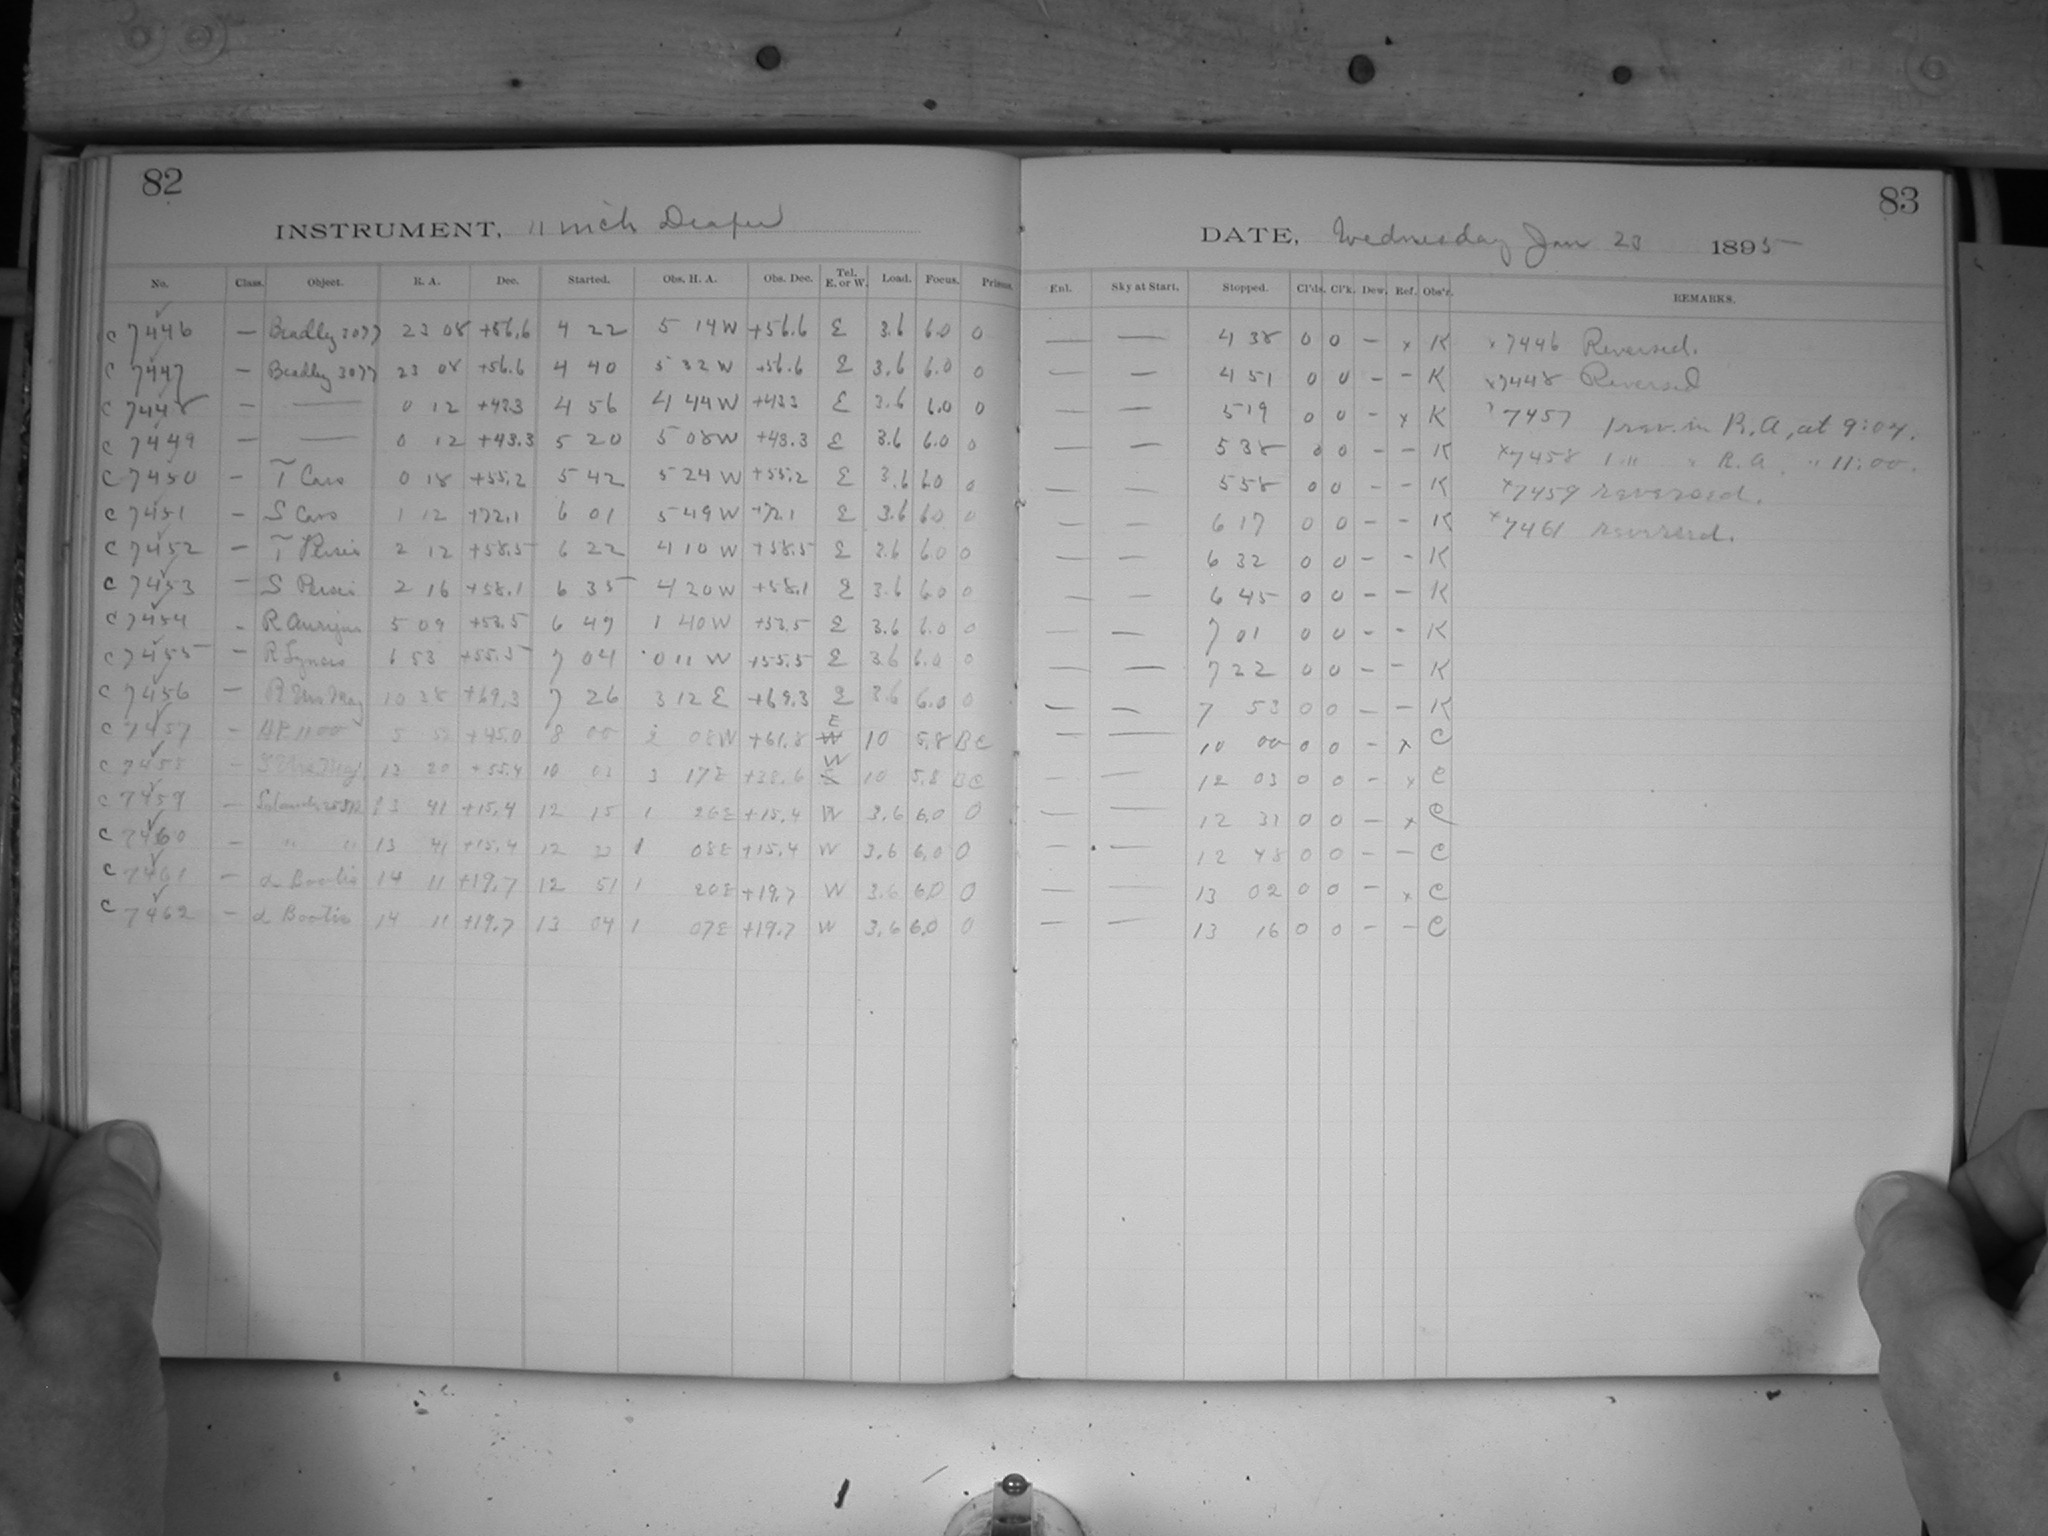 82
INSTRUMENT, 11 inch Draper
No. Class. Object. R. A. Dec. Started. Obs. H. A. Obs. Dec. Tel. E. or W. Load. Focus. Prisms.
C 7446 — Bradley 3077 23 08 +56.6 4 22 5 14 W +56.6 E 3.6 6.0 0
C 7447 — Bradley 3077 23 08 +56.6 4 40 5 32 W +56.6 E 3.6 6.0 0
C 7448 — — 0 12 +43.3 4 56 4 44 W +43.3 E 3.6 6.0 0
C 7449 — — 0 12 +43.3 5 20 5 08 W +43.3 E 3.6 6.0 0
C 7450 — T Cass 0 18 +55.2 5 42 5 24 W +55.2 E 3.6 6.0 0
C 7451 — S Cass 1 12 +72.1 6 01 5 49 W +72.1 E 3.6 6.0 0
C 7452 — T Persei 2 12 +58.5 6 22 4 10 W +58.5 E 3.6 6.0 0
C 7453 — S Persei 2 16 +58.1 6 35 4 20 W +58.1 E 3.6 6.0 0
C 7454 — R Aurigae 5 09 +53.5 6 49 1 40 W +53.5 E 3.6 6.0 0
C 7455 — R Lyncis 6 53 +55.5 7 04 0 11 W +55.5 E 3.6 6.0 0
C 7456 — R Urs Maj 10 38 +69.3 7 26 3 12 E +69.3 E 3.6 6.0 0
C 7457 — 1100 5 52 +45.0 8 00 2 08 W +61.8 E W 10 5.8 BC
C 7458 — Urs. Maj. 13 20 +55.4 10 03 3 17 E +38.6 W E 10 5.8 BC
C 7459 — 13 41 +15.4 12 15 1 26 E +15.4 W 3.6 6.0 0
C 7460 — " " 13 41 +15.4 12 33 1 08 E +15.4 W 3.6 6.0 0
C 7461 — α Bootis 14 11 +19.7 12 51 1 20 E +19.7 W 3.6 6.0 0
C 7462 — α Bootis 14 11 +19.7 13 04 1 07 E +19.7 W 3.6 6.0 0
83
DATE, Wednesday Jan 23 1895
Enl. Sky at Start. Stopped. Cl'ds. Cl'k. Dew. Ref. Obs'r. REMARKS.
— — 4 38 0 0 — x K x 7446 Reversed.
— — 4 51 0 0 — — K x 7448 Reversed
— — 5 19 0 0 — x K x 7457 1 rev. in R.A, at 9:04.
— — 5 38 0 0 — — K x 7458 1 " " R.A. " 11:00.
— — 5 58 0 0 — — K x 7459 reversed.
— — 6 17 0 0 — — K x 7461 reversed.
— — 6 32 0 0 — — K
— — 6 45 0 0 — — K
— — 7 01 0 0 — — K
— — 7 22 0 0 — — K
— — 7 53 0 0 — — K
— — 10 00 0 0 — x C
— — 12 03 0 0 — x C
— — 12 31 0 0 — x C
— — 12 48 0 0 — — C
— — 13 02 0 0 — x C
— — 13 16 0 0 — — C